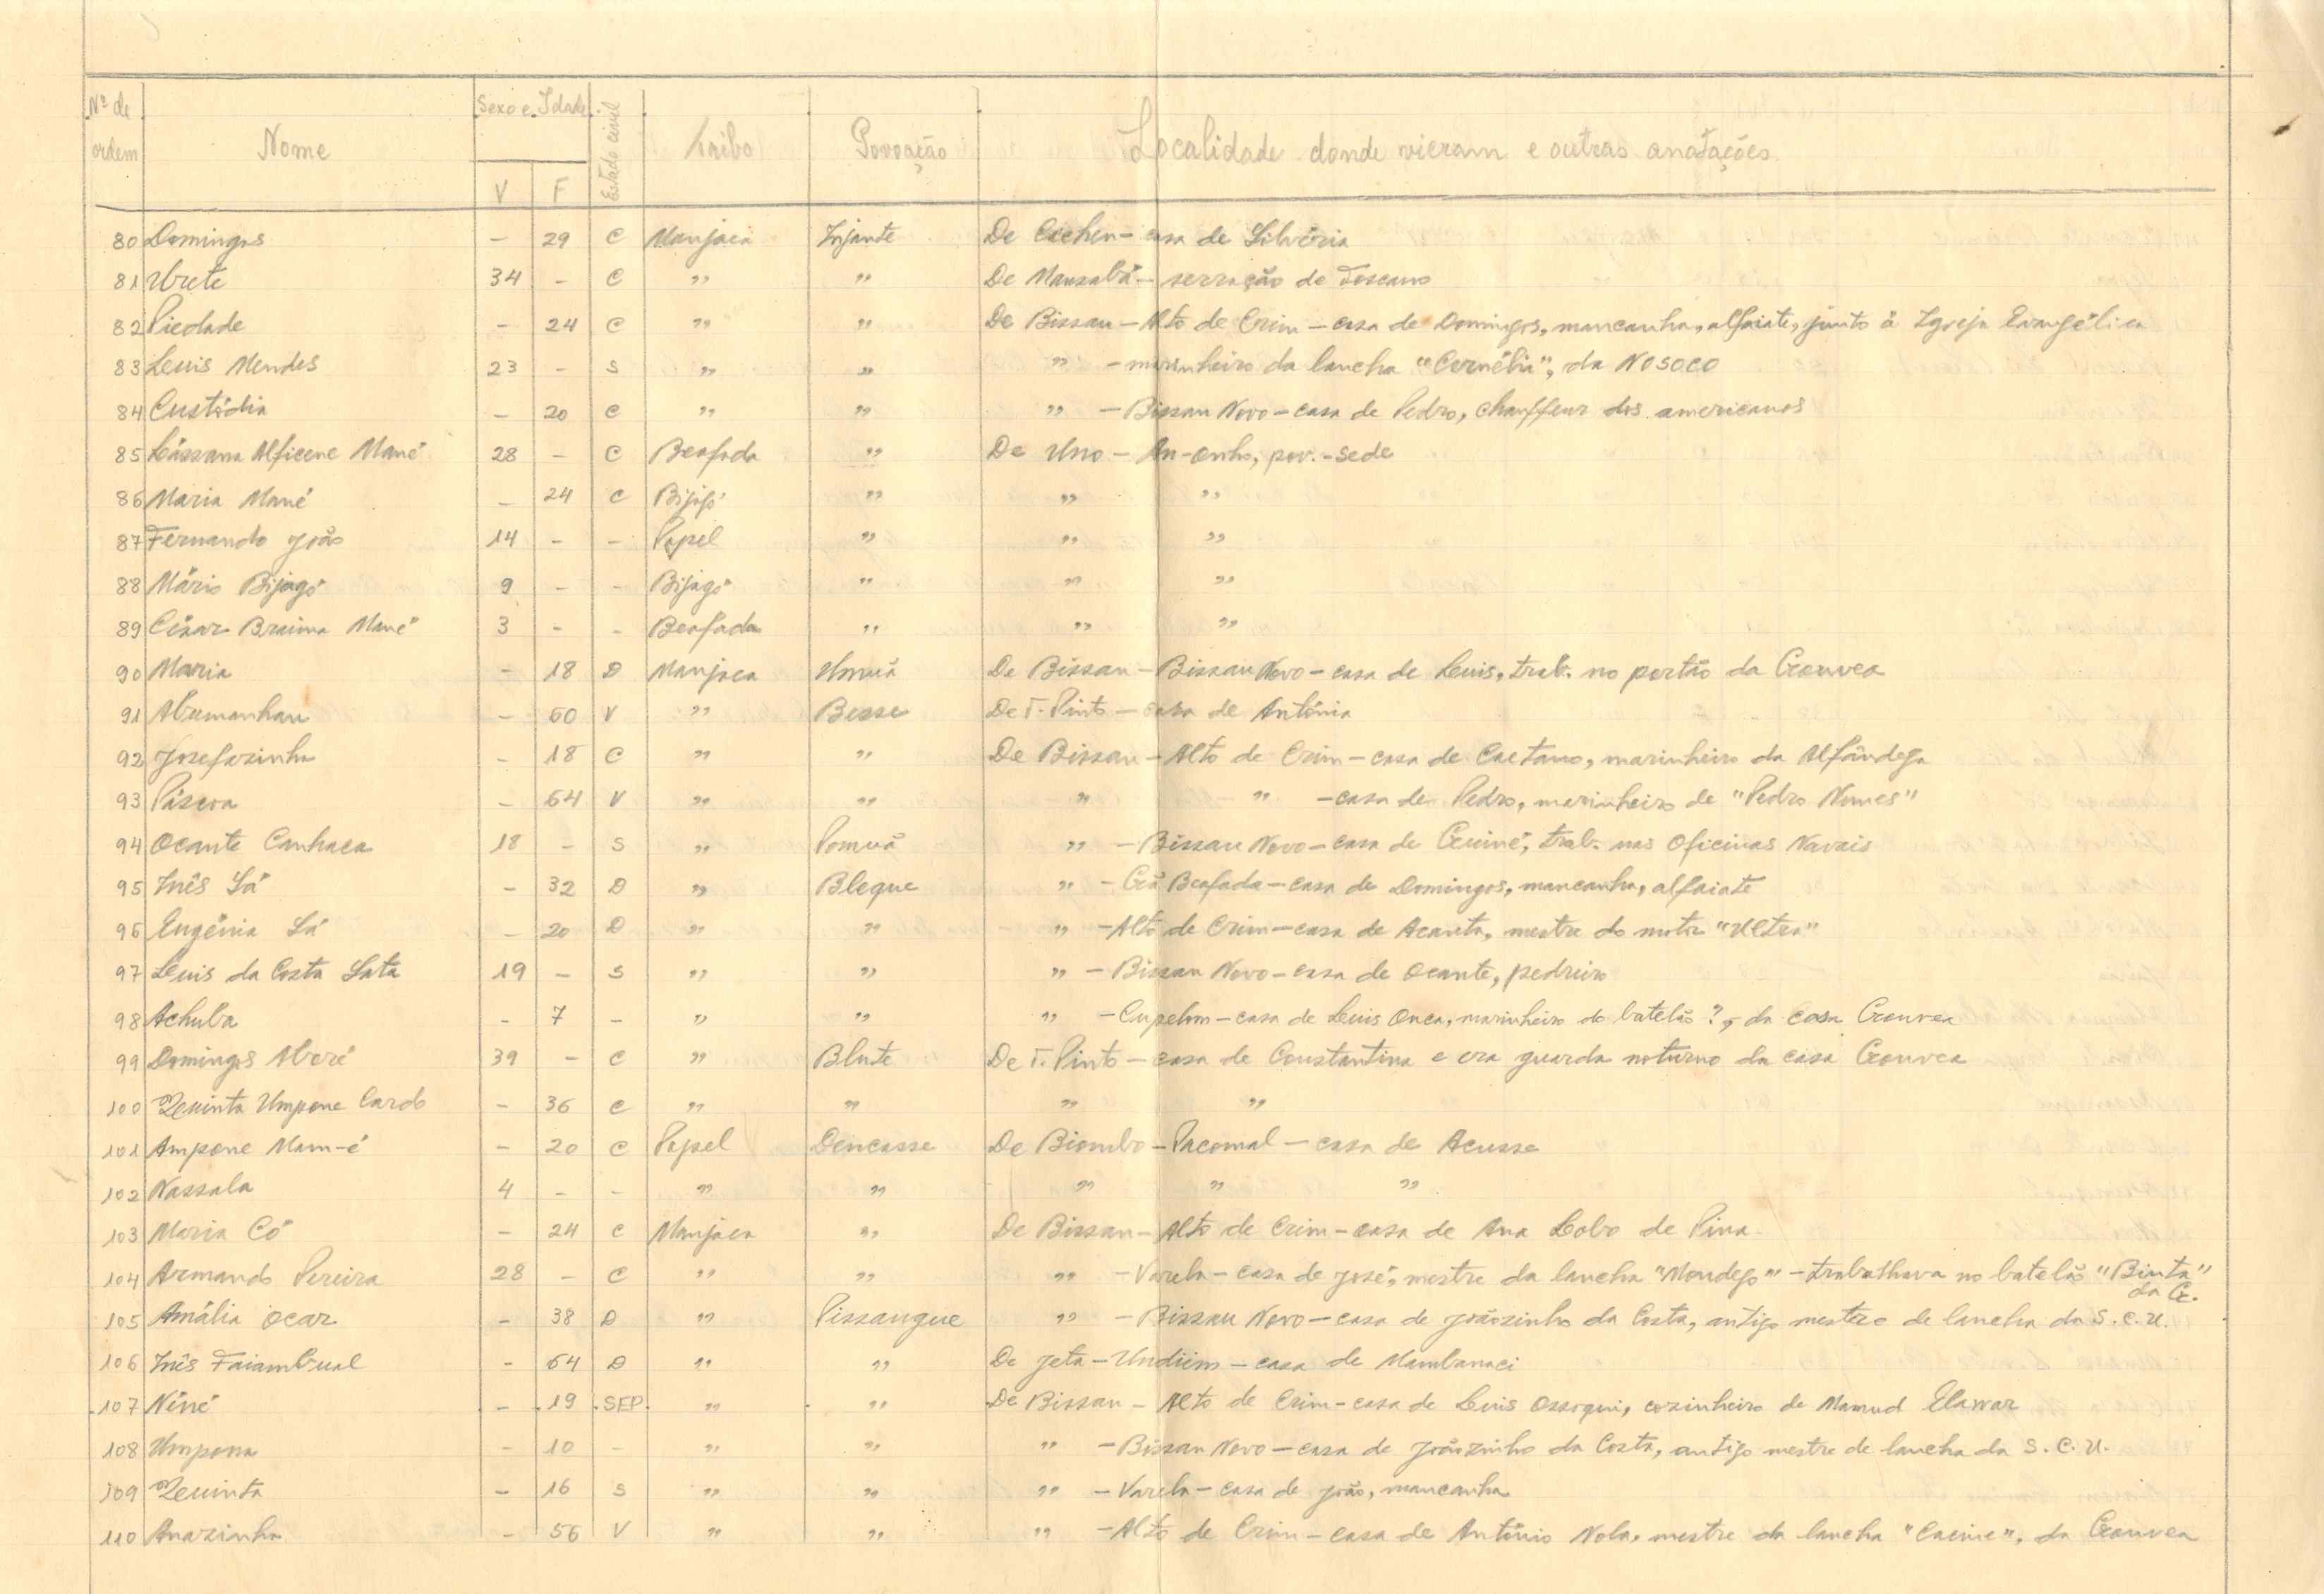 Nº de ordem Nome Sexo e Idade V F Estado civil Tribo Povoação Localidade donde vieram e outras anotações
80 Domingos - 29 C Manjaca Injante De Cacheu - casa de Silvéria
81 Ubrete 34 - C " " De Mansabá - serração de Toscano
82 Piedade - 24 C " " De Bissau - Alto de Crim - casa de Domingos, mancanha, alfaiate, junto à Igreja Evangélica
83 Luis Mendes 23 - S " " " - marinheiro da lancha "Cornélia", da NOSOCO
84 Custódia - 20 C " " " - Bissau Novo - casa de Pedro, chauffeur dos americanos
85 Lássana Alficene Mané 28 - C Beafada " De Uno - An-onho, pov.-sede
86 Maria Mané - 24 C Bijagó " " "
87 Fernando João 14 - - Papel " " "
88 Mário Bijagó 9 - - Bijagó " " "
89 César Braima Mané 3 - - Beafada " " "
90 Maria - 18 D Manjaca Umuá De Bissau - Bissau Novo - casa de Luis, trab. no portão da Gouvea
91 - 60 V " Besse De T. Pinto - casa de Antónia
92 Josefazinha - 18 C " " De Bissau - Alto de Crim - casa de Caetano, marinheiro da Alfândega
93 Páscoa - 64 V " " " " - casa de Pedro, marinheiro de "Pedro Nunes"
94 Ocante Canhaca 18 - S " Pomuá " - Bissau Novo - casa de Guiné, trab. nas Oficinas Navais
95 Inês Sá - 32 D " Bleque " - Gã Beafada - casa de Domingos, mancanha, alfaiate
96 Eugénia Sá - 20 D " " " - Alto de Crim - casa de Acanta, mestre do motor
97 Luis da Costa Sata 19 - S " " " - Bissau Novo - casa de Ocante, pedreiro
98 Achuba - 7 - " " " - Cupelom - casa de Luis Onca, marinheiro do batelão ?, da casa Gouvea
99 Domingos Aboré 39 - C " Blute De T. Pinto - casa de Constantina e era guarda noturno da casa Gouvea
100 Quinta Umpone Cardo - 36 C " " " "
101 Ampone Mam-é - 20 C Papel Dencasse De Biombo - Pacomal - casa de Acusse
102 Nassala 4 - - " " " " "
103 Maria Có - 24 C Manjaca " De Bissau - Alto de Crim - casa de Ana Lobo de Pina
104 Armando Pereira 28 - C " " " - Varela - casa de José, mestre da lancha "Mondego" - trabalhava no batelão "Binta"
da G.
105 Amália Ocar - 38 D " Pissangue " - Bissau Novo - casa de Joãozinho da Costa, antigo mestre de lancha da S.C.U.
106 Inês Faiambual - 64 D " " De Jeta - Undiim - casa de Mambanaci
107 Néné - 19 SEP. " " De Bissau - Alto de Crim - casa de Luis Ossoqui, cozinheiro de Mamud Elawar
108 Umpossa - 10 - " " " - Bissau Novo - casa de Joãozinho da Costa, antigo mestre de lancha da S.C.U.
109 Quinta - 16 S " " " - Varela - casa de João, mancanha
110 Anazinha - 56 V " " " - Alto de Crim - casa de António Nola, mestre da lancha "Cacine", da Gouvea